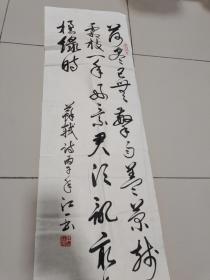 荷尽已无擎雨盖菊残
霜枝一年好景君须记最是
橙绿时
苏轼诗丙子年江云